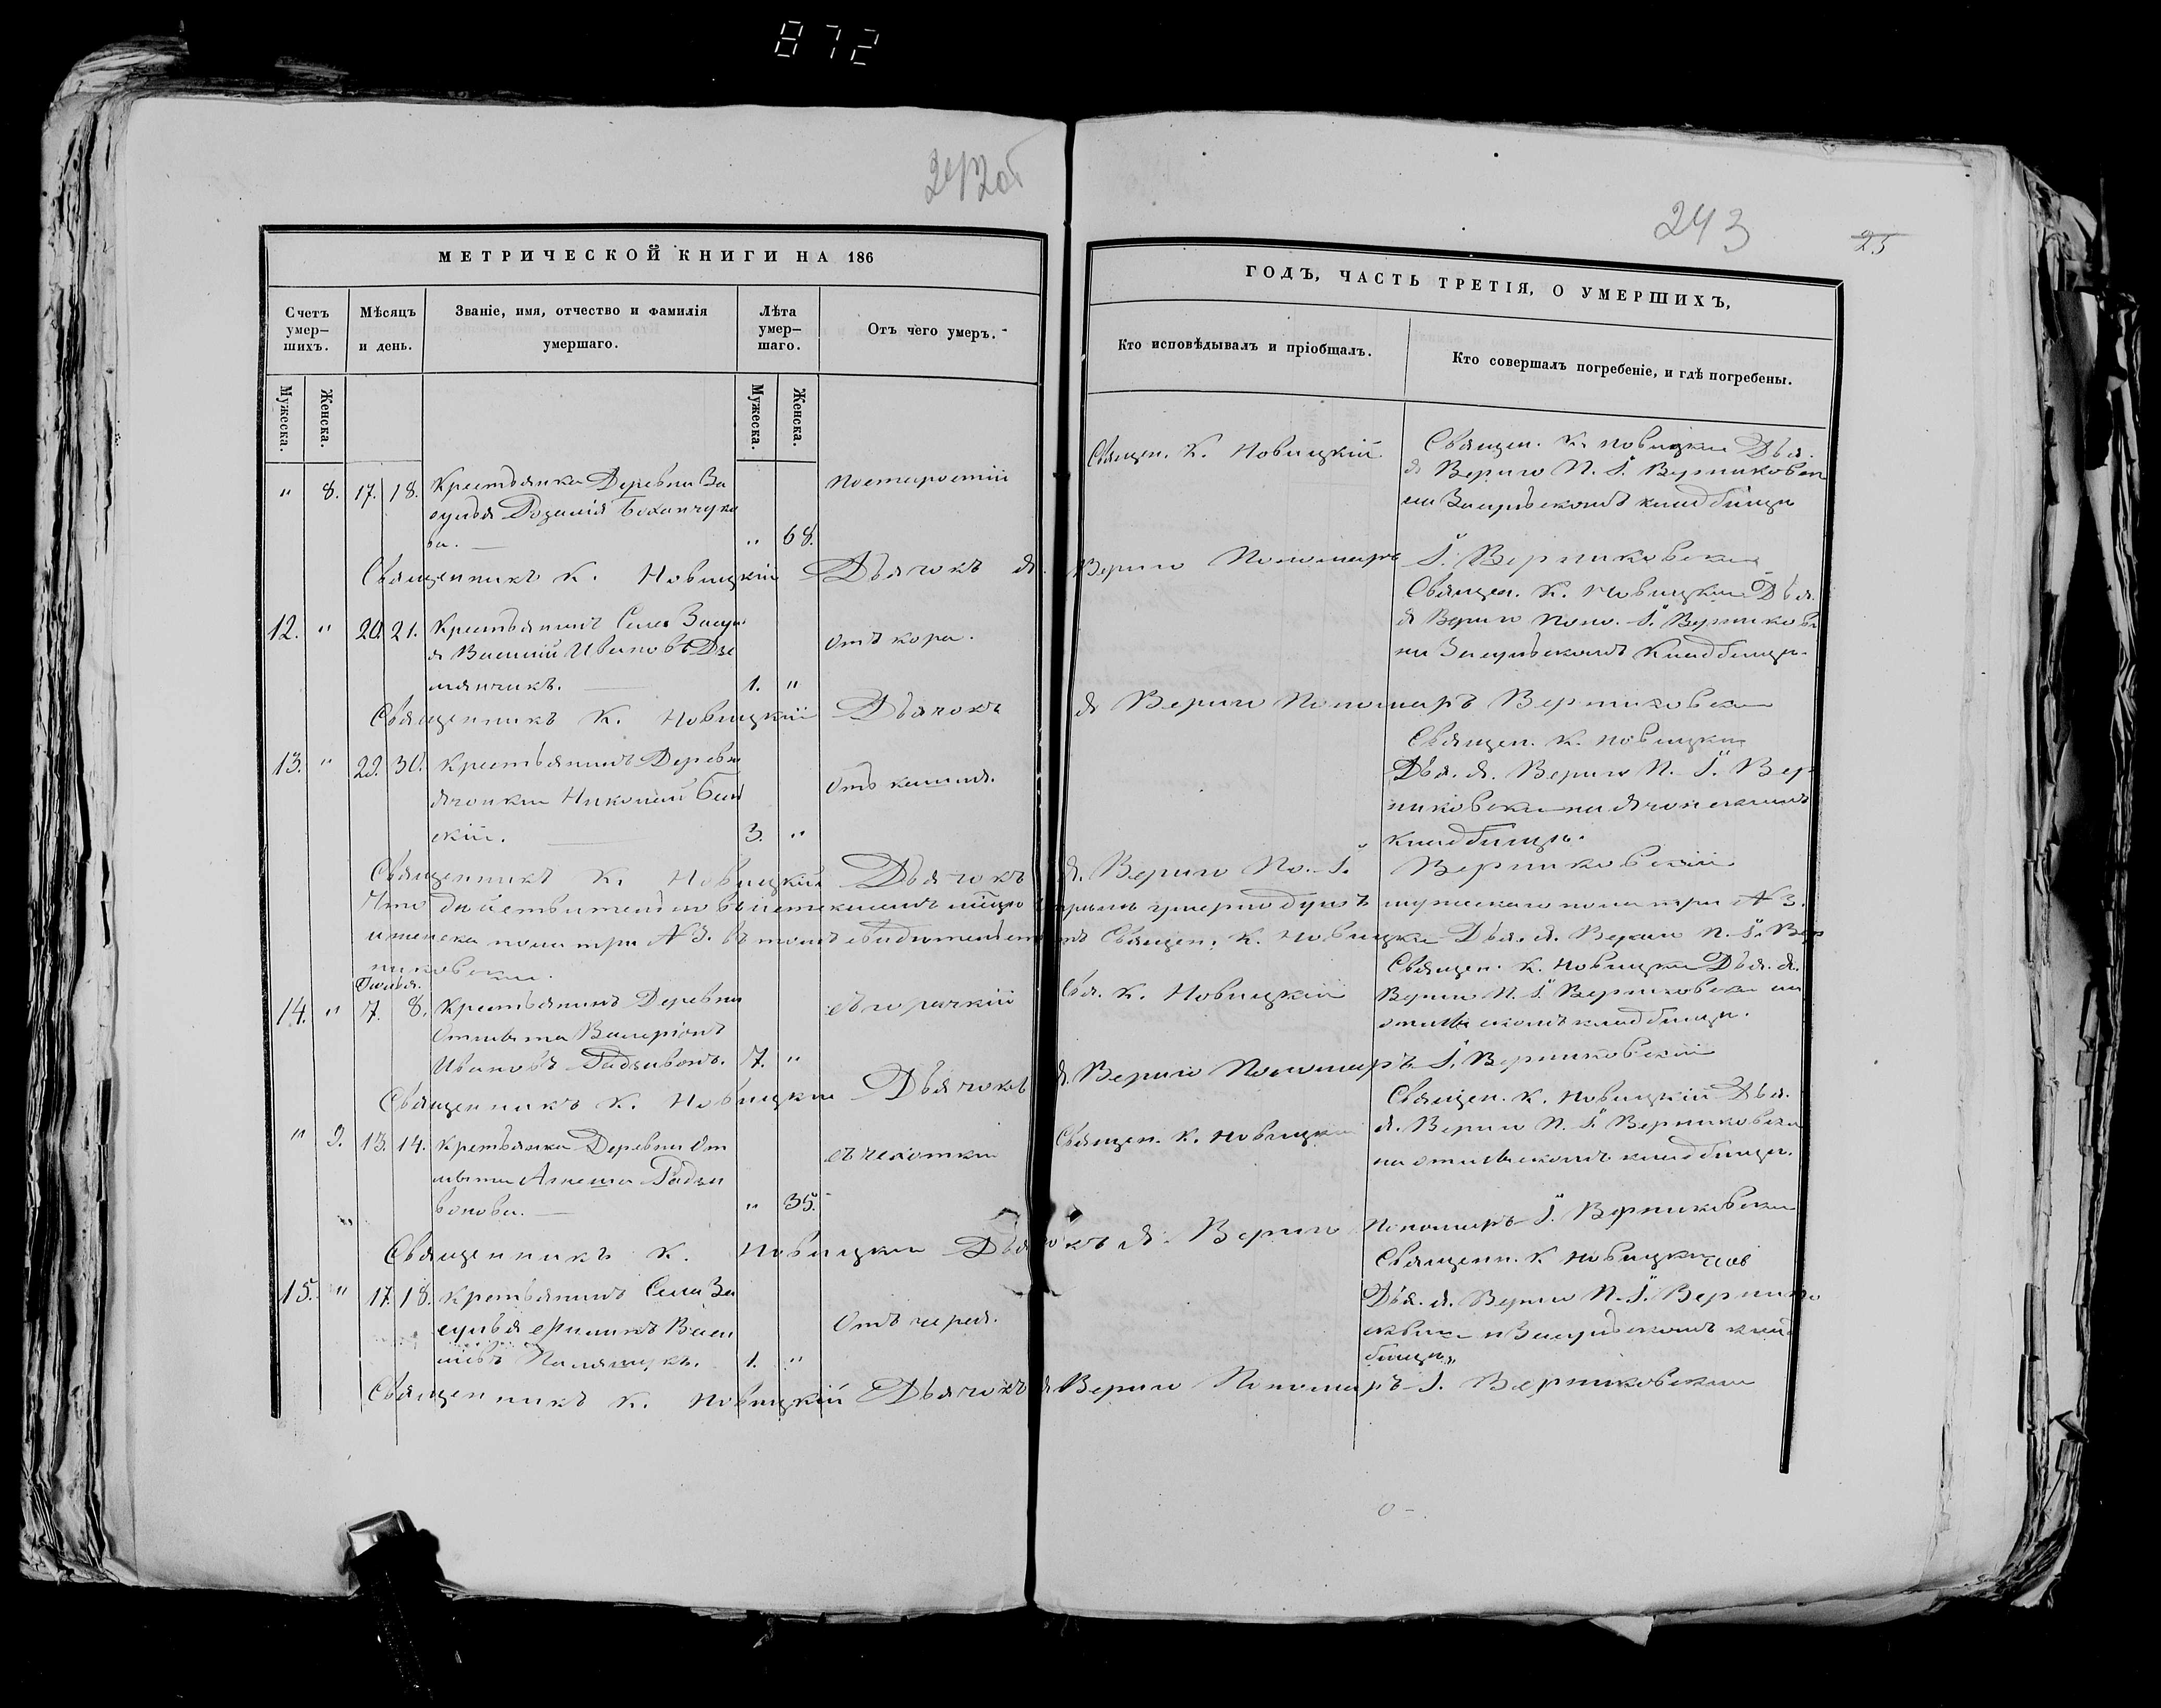 872
242об
243
25
МЕТРИЧЕСКОЙ КНИГИ НА 186
ГОДЪ, ЧАСТЬ ТРЕТІЯ, О УМЕРШИХЪ,
Счетъ умер-
шихъ.
Мѣсяцъ
и день.
Званіе, имя, отчество и фамилія
умершаго.
Лѣта
умер-
шаго.
Отъ чего умеръ.
Кто исповѣдывалъ и пріобщалъ.
Кто совершалъ погребеніе, и гдѣ погребены.
Мужеска.
Женска.
Мужеска.
Женска.
" 8. 17. 18. Крестьянка Деревни За
сулья Розалія
ва. " 68.
постаростій
Священ. К. Новицкій.
Священ. К. Новицкий Дья.
Я Вериго П. І. Верниковск
на Засульскомъ кладбищи
Священникъ К. Новицкій Дьячокъ Я. Вериго Пономаръ І. Верниковский
12. " 20. 21. Крестьянинъ Села Засул
я Василій Ивановъ Дзе
мянчикъ. 1. "
Отъ кора.
Священ. К. Новицкий Дья.
Я Вериго Поно. І. Верникови
на Засульскомъ Кладбищи.
Священникъ К. Новицкій Дьячокъ Я Вериго Пономаръ Верниковский
13. " 29. 30. Крестьянинъ Деревн
Ячонки Николай
скій. 3. "
Отъ кашля.
Священ. К. Новицкий
Дья. Я. Вериго П. І. Вер
никовский на Ячонскимъ
кладбищи.
Священникъ К. Новицкій Дьячокъ Я. Вериго По. І. Верниковскій
Что дѣйствительно въ истекшимъ умерло душъ мужескаго пола три №3.
и женска пола три №3. въ томъ Священ. К. Новицкий Дья. Я. Вериго П. І. Вер
никовский.
14. " 7. 8. Крестьянинъ Деревни
Отмыта Валеріонъ
Ивановъ Гадзивонъ. 7. "
съ горачкій
Свя. К. Новицкій
Священ. К. Новицкий Дья. Я.
Вериго П. І. Верниковски на
кладбищи.
Священникъ К. Новицкий Дьячокъ Я. Вериго Пономаръ І. Верниковскій
" 9. 13. 14. Кретьянка Деревни От
мыта Агнеша Гадзи
вонова. " 35.
съ чехотки
Священ. К. Новицки
Священ. К. Новицкій Дья.
Я. Вериго П. І. Верниковски
на кладбищи.
Священникъ К. Новицкий Дьячокъ Я. Вериго Пономаръ І. Верниковски
15. " 17. 18. Кретьянинъ Села За
сулья Василь
евъ 1. "
Отъ чера.
Священн. К Новицки
Дья. Я. Вериго П. І. Вернико
Засульскомъ клад
бищи
Священникъ К. Новицкій Дьячокъ Я Вериго Пономаръ І. Верниковский